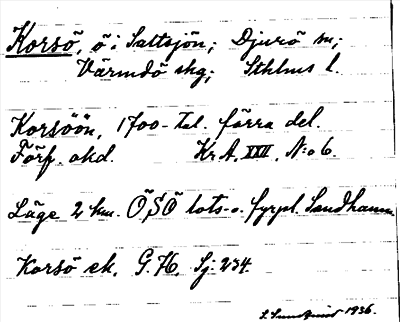 Korsö, ö i Saltsjön; Djurö sn;
Värmdö skg; Sthlms l.
Korsöön, 1700-tal. förra del.
Förf. okd. Kr A. XXII, N:o 6.
Läge 2 km. ÖSÖ lots- o. fyrpl. Sandhamn
Korsö ek. G. K. Sj: 234.
1936.